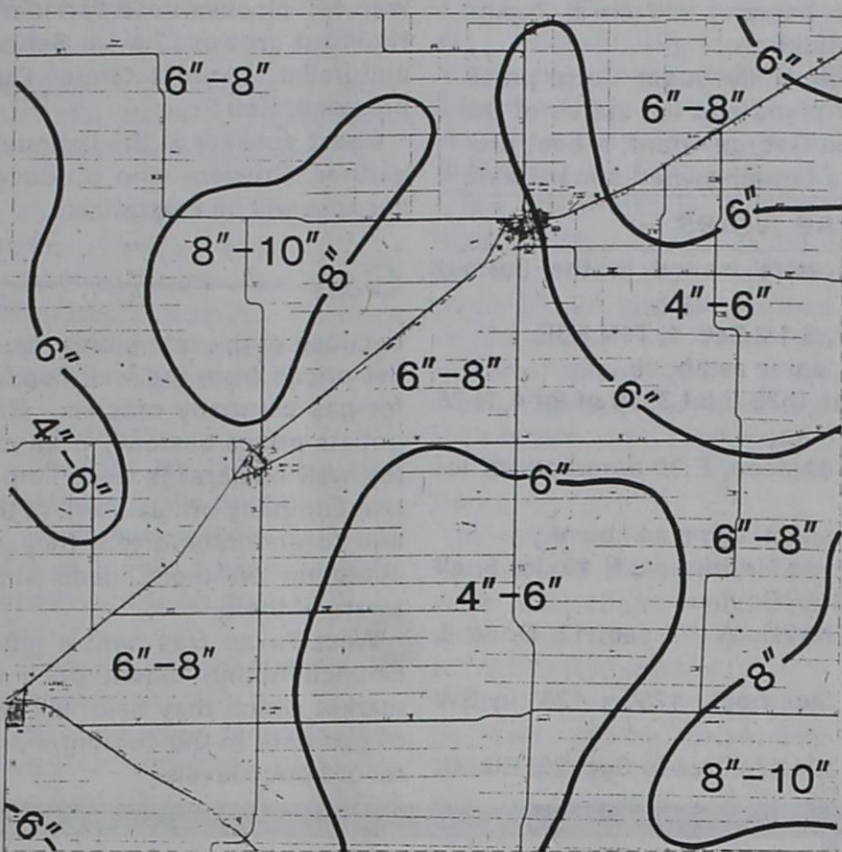 6″
6″–8″
6″–8″
6″
8″–10″
8″
4″–6″
6″
6″–8″
6″
4″–6″
6″
6″–8″
4″–6″
6″–8″
8″
8″–10″
6″